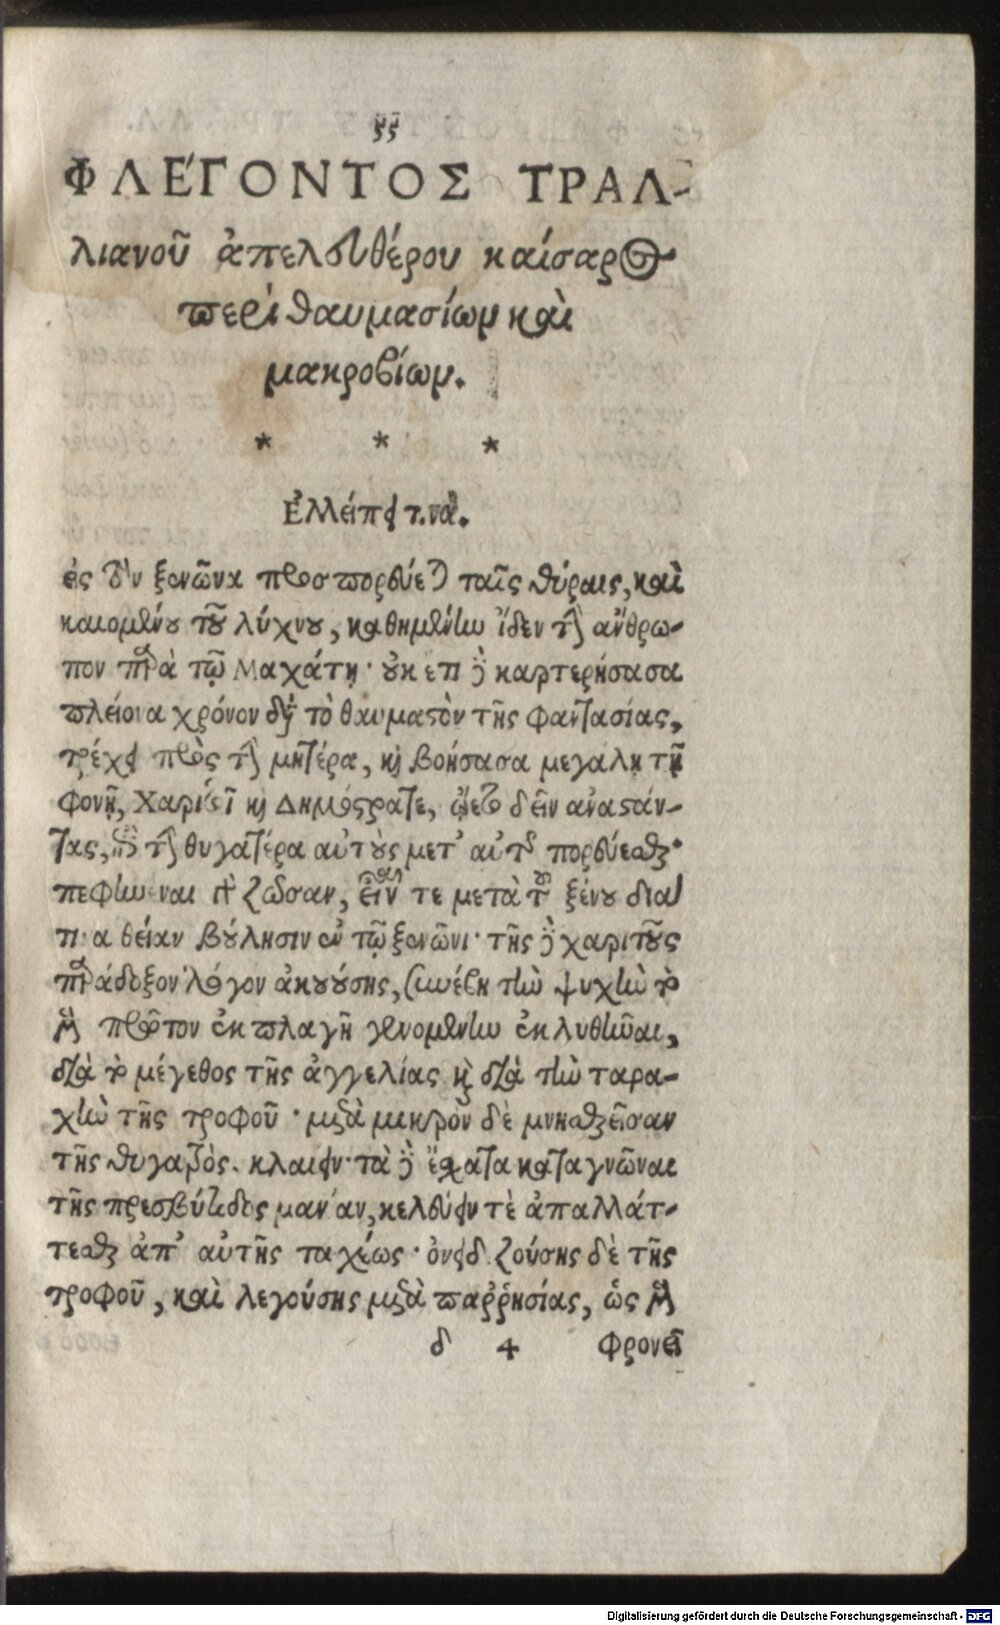 ϛϛ
ΦΛΕΓΟΝΤΟΣ ΤΡΑΛ-
λιανοῦ ἀπελευθέρου καίσαρος
περὶ θαυμασίων καὶ
μακροβίων.
* * *
Ἐλλείπει τινά.
εἰς τὸν ξενῶνα προσπορεύεται ταῖς θύραις, καὶ
καιομένου τοῦ λύχνου, καθημένην ἴδεν τὴν ἄνθρω-
πον παρὰ τῷ Μαχάτῃ· οὐκ ἐπὶ δὲ καρτερήσασα
πλείονα χρόνον διὰ τὸ θαυμαστὸν τῆς φαντασίας,
τρέχει πρὸς τὴν μητέρα, καὶ βοήσασα μεγάλῃ τῇ
φονῇ, Χαριτοῖ καὶ Δημόστρατε, ᾤετο δεῖν ἀναστάν-
τας, ἐπὶ τὴν θυγατέρα αὐτοὺς μετ' αὐτῆς πορεύεσθαι·
πεφηνέναι γὰρ ζῶσαν, εἶναί τε μετὰ τοῦ ξένου διά
τινα θείαν βούλησιν ἐν τῷ ξενῶνι· τῆς δὲ χαριτοῦς
παράδοξον λόγον ἀκουούσης, συνέβη τὴν ψυχὴν τὸ
μὲν πρῶτον ἐκπλαγῆ γενομένην ἐκλυθῆναι,
διὰ τὸ μέγεθος τῆς ἀγγελίας καὶ διὰ τὴν ταρα-
χὴν τῆς τροφοῦ· μετὰ μικρὸν δὲ μνησθεῖσαν
τῆς θυγατρὸς. κλαίειν· τὰ δὲ ἔσχατα καταγνῶναι
τῆς πρεσβύτιδος μανίαν, κελεύειν τὲ ἀπαλλάτ-
τεσθαι ἀπ' αὐτῆς ταχέως· ὀνειδιζούσης δὲ τῆς
τροφοῦ, καὶ λεγούσης μετὰ παῤῥησίας, ὡς μὲν
δ 4 φρονεῖ